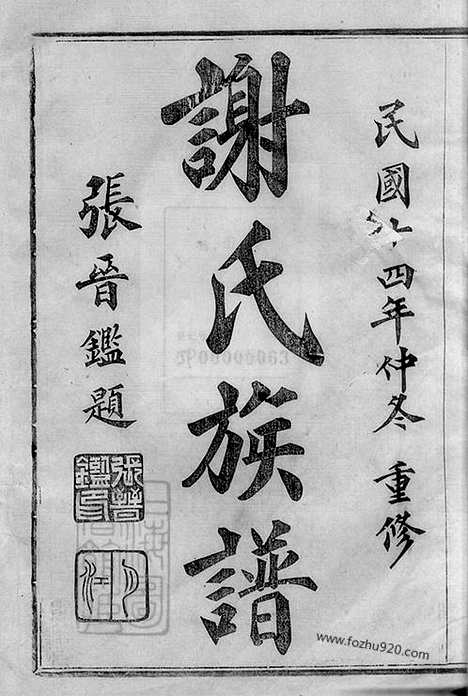 民國四年仲冬 重修
謝氏族譜
張晉鑑題
張晉鑑印
www.fozhu920.com